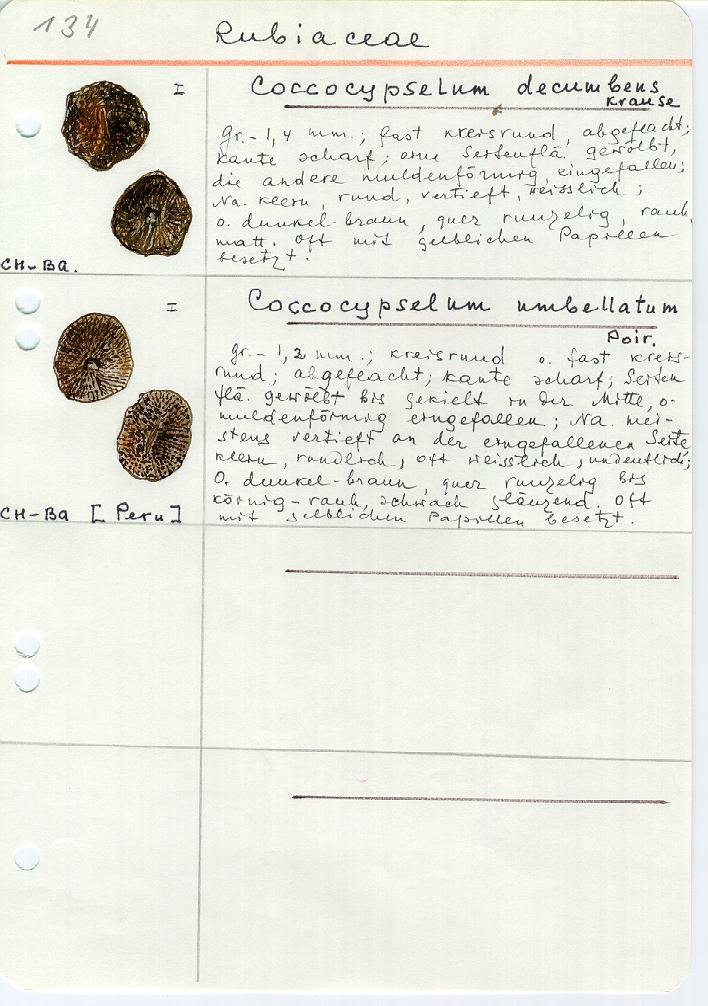 134
Rubiaceae
I
Coccocypselum decumbens
Krause
gr. - 1,4 mm.; fast kreisrund, abgeflacht;
kante scharf; eine Seitenflä. gewölbt,
die andere muldenförmig, eingefallen;
Na. klein, rund, vertieft, weisslich;
o. dunkel-braun, quer runzelig, rauh,
matt. oft mit gelblichen Papillen
besetzt.
CH-Ba.
I
Coccocypselum umbellatum
Poir.
gr. - 1,2 mm.; kreisrund o. fast kreis-
rund; abgeflacht; kante scharf; Seiten
flä. gewölbt bis gekielt in der Mitte, o.
muldenförmig eingefallen; Na. mei-
stens vertieft an der eingefallenen Seite,
klein, rundlich, oft weisslich, undeutlich;
O. dunkel-braun, quer runzelig bis
körnig-rauh, schwach glänzend. Oft
mit gelblichen Papillen besetzt.
CH-Ba [Peru]